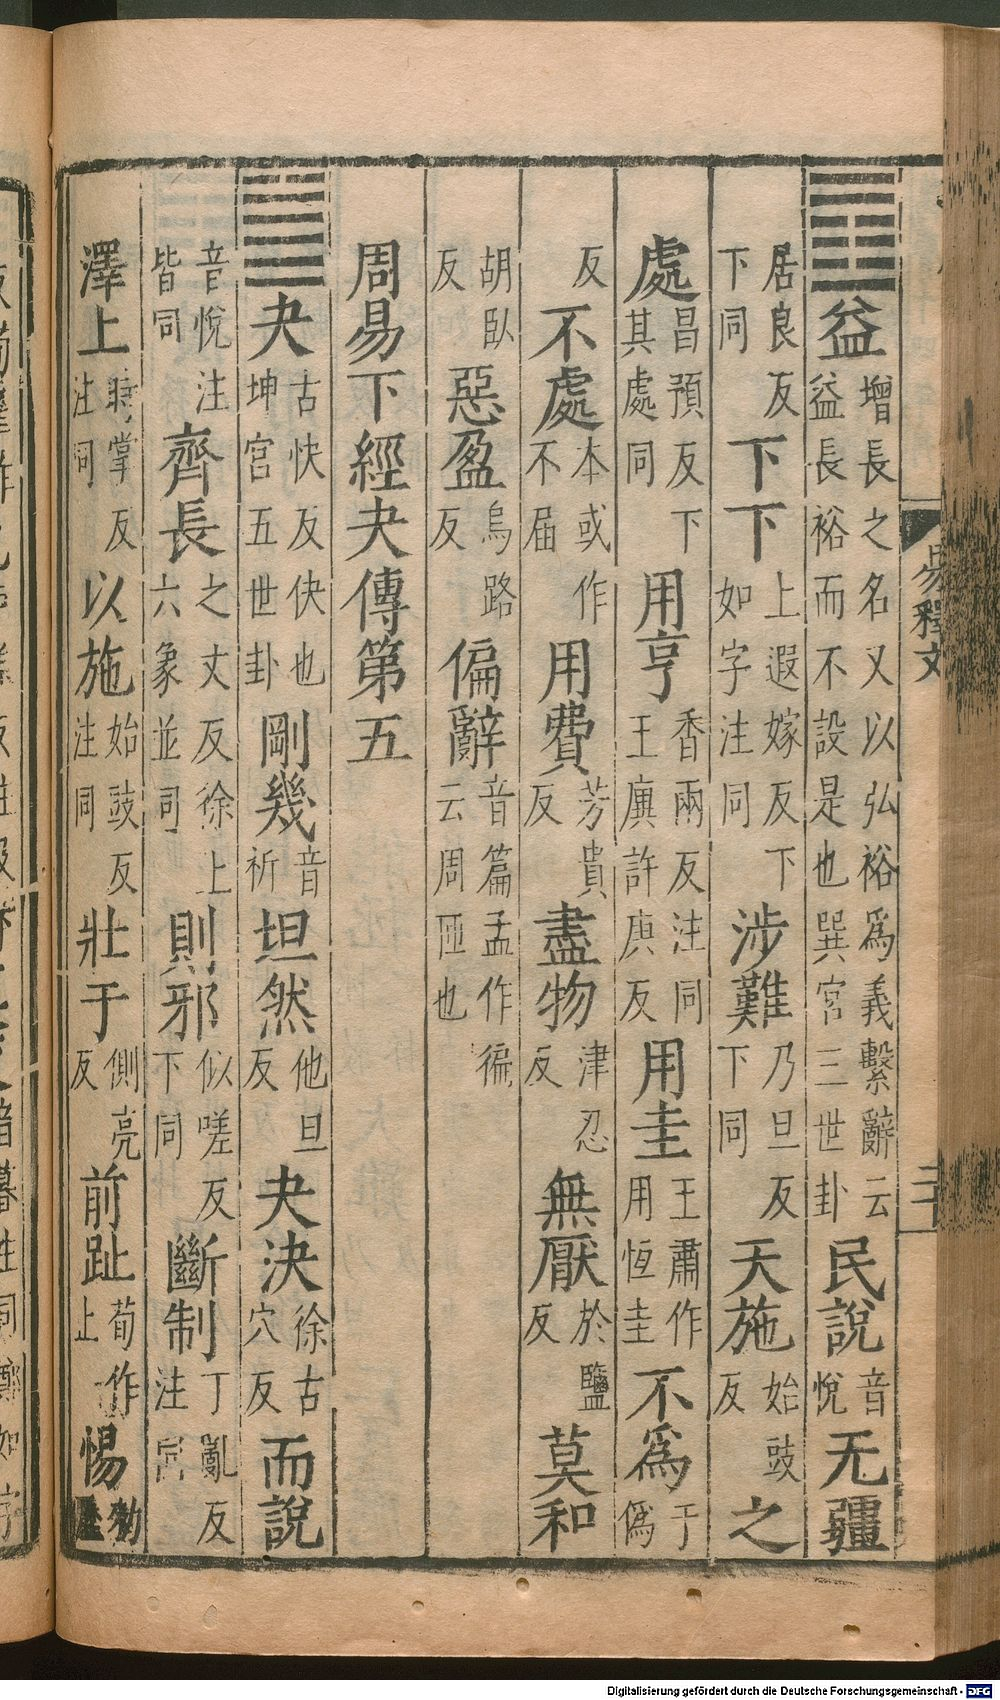 ䷩益增長之名又以弘裕爲義繫辭云益長裕而不設是也巽宮三世卦民說音悅无疆
居良反下同下下上遐嫁反下如字注同涉難乃旦反下同天施始豉反之
處昌預反下其處同用亨香兩反注同王廙許庚反用圭王肅作用恆圭不爲于僞
反不處本或作不届用費芳貴反盡物津忍反無厭於鹽反莫和
胡臥反惡盈烏路反偏辭音篇孟作徧云周匝也
周易下經夬傳第五
䷪夬古快反快也坤宮五世卦剛幾音祈坦然他旦反夬決徐古穴反而說
音悅注皆同齊長之丈反徐上六象並同則邪似嗟反下同斷制丁亂反注同
澤上時掌反注同以施始豉反注同壯于側亮反前趾荀作止惕勑歷
易釋文
Digitalisierung gefördert durch die Deutsche Forschungsgemeinschaft - DFG